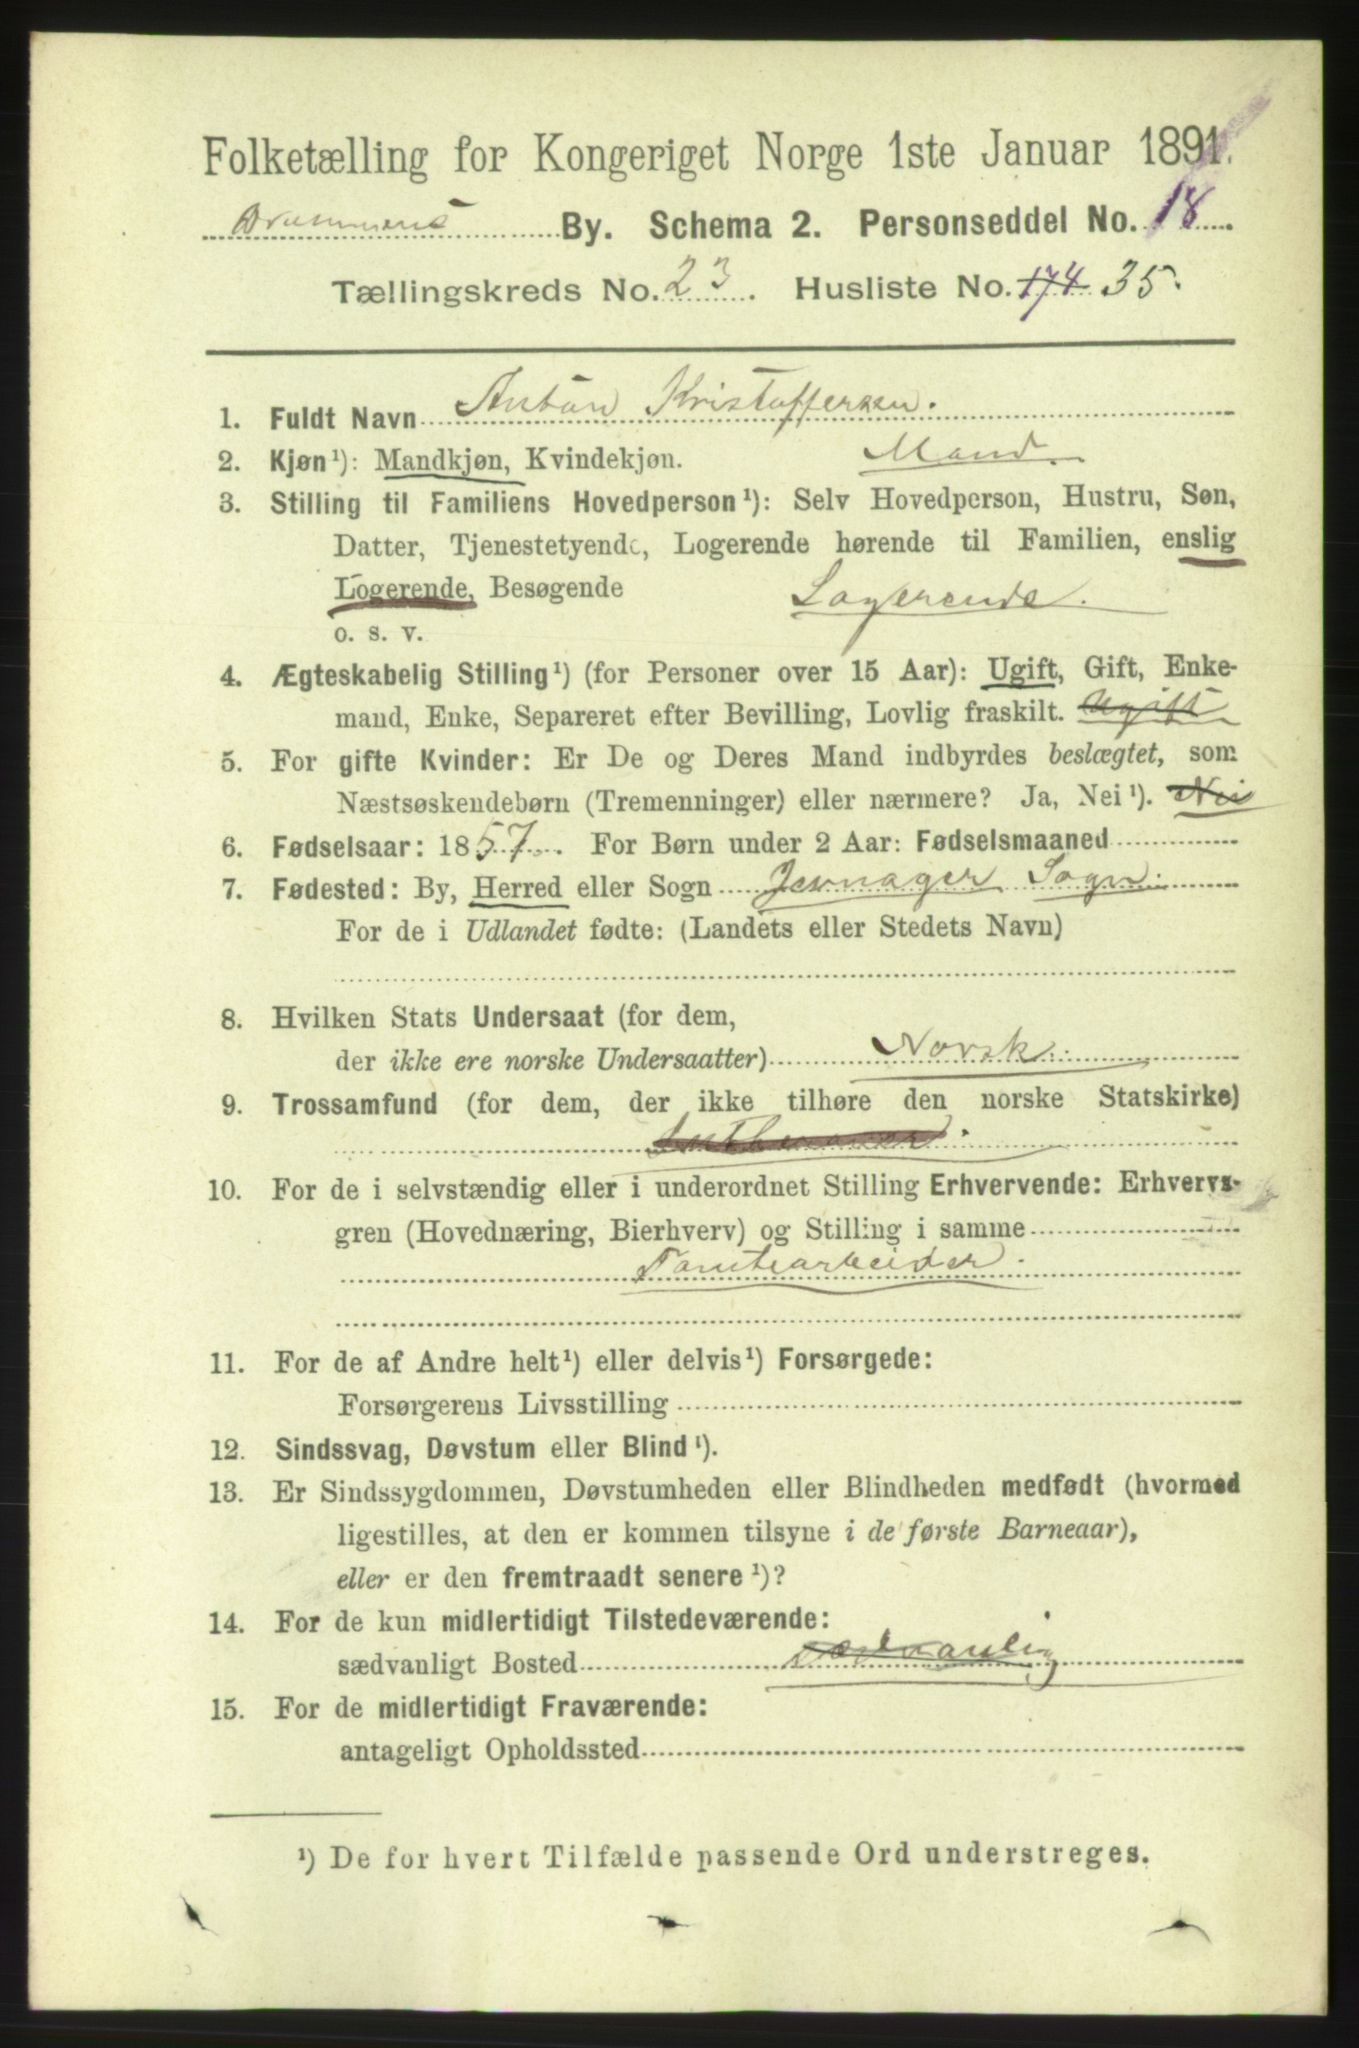 Folketælling for Kongeriget Norge 1ste Januar 1891.
Drammens By. Schema 2. Personseddel No. 18.
Tællingskreds No. 23. Husliste No. 174 35.
1. Fuldt Navn Anton Kristoffersen.
2. Kjøn¹): Mandkjøn, Kvindekjøn. Mand.
3. Stilling til Familiens Hovedperson¹): Selv Hovedperson, Hustru, Søn,
Datter, Tjenestetyende, Logerende hørende til Familien, enslig
Logerende, Besøgende Logerende.
o. s. v.
4. Ægteskabelig Stilling¹) (for Personer over 15 Aar): Ugift, Gift, Enke-
mand, Enke, Separeret efter Bevilling, Lovlig fraskilt. Ugift
5. For gifte Kvinder: Er De og Deres Mand indbyrdes beslægtet, som
Næstsøskendebørn (Tremenninger) eller nærmere? Ja, Nei¹). Nei
6. Fødselsaar: 1857. For Børn under 2 Aar: Fødselsmaaned
7. Fødested: By, Herred eller Sogn Jevnager Sogn.
For de i Udlandet fødte: (Landets eller Stedets Navn)
8. Hvilken Stats Undersaat (for dem,
der ikke ere norske Undersaatter) Norsk.
9. Trossamfund (for dem, der ikke tilhøre den norske Statskirke)
10. For de i selvstændig eller i underordnet Stilling Erhvervende: Erhvervs-
gren (Hovednæring, Bierhverv) og Stilling i samme
Tomtearbeider.
11. For de af Andre helt¹) eller delvis¹) Forsørgede:
Forsørgerens Livsstilling
12. Sindssvag, Døvstum eller Blind¹).
13. Er Sindssygdommen, Døvstumheden eller Blindheden medfødt (hvormed
ligestilles, at den er kommen tilsyne i de første Barneaar),
eller er den fremtraadt senere¹)?
14. For de kun midlertidigt Tilstedeværende:
sædvanligt Bosted sædvanlig
15. For de midlertidigt Fraværende:
antageligt Opholdssted
¹) De for hvert Tilfælde passende Ord understreges.